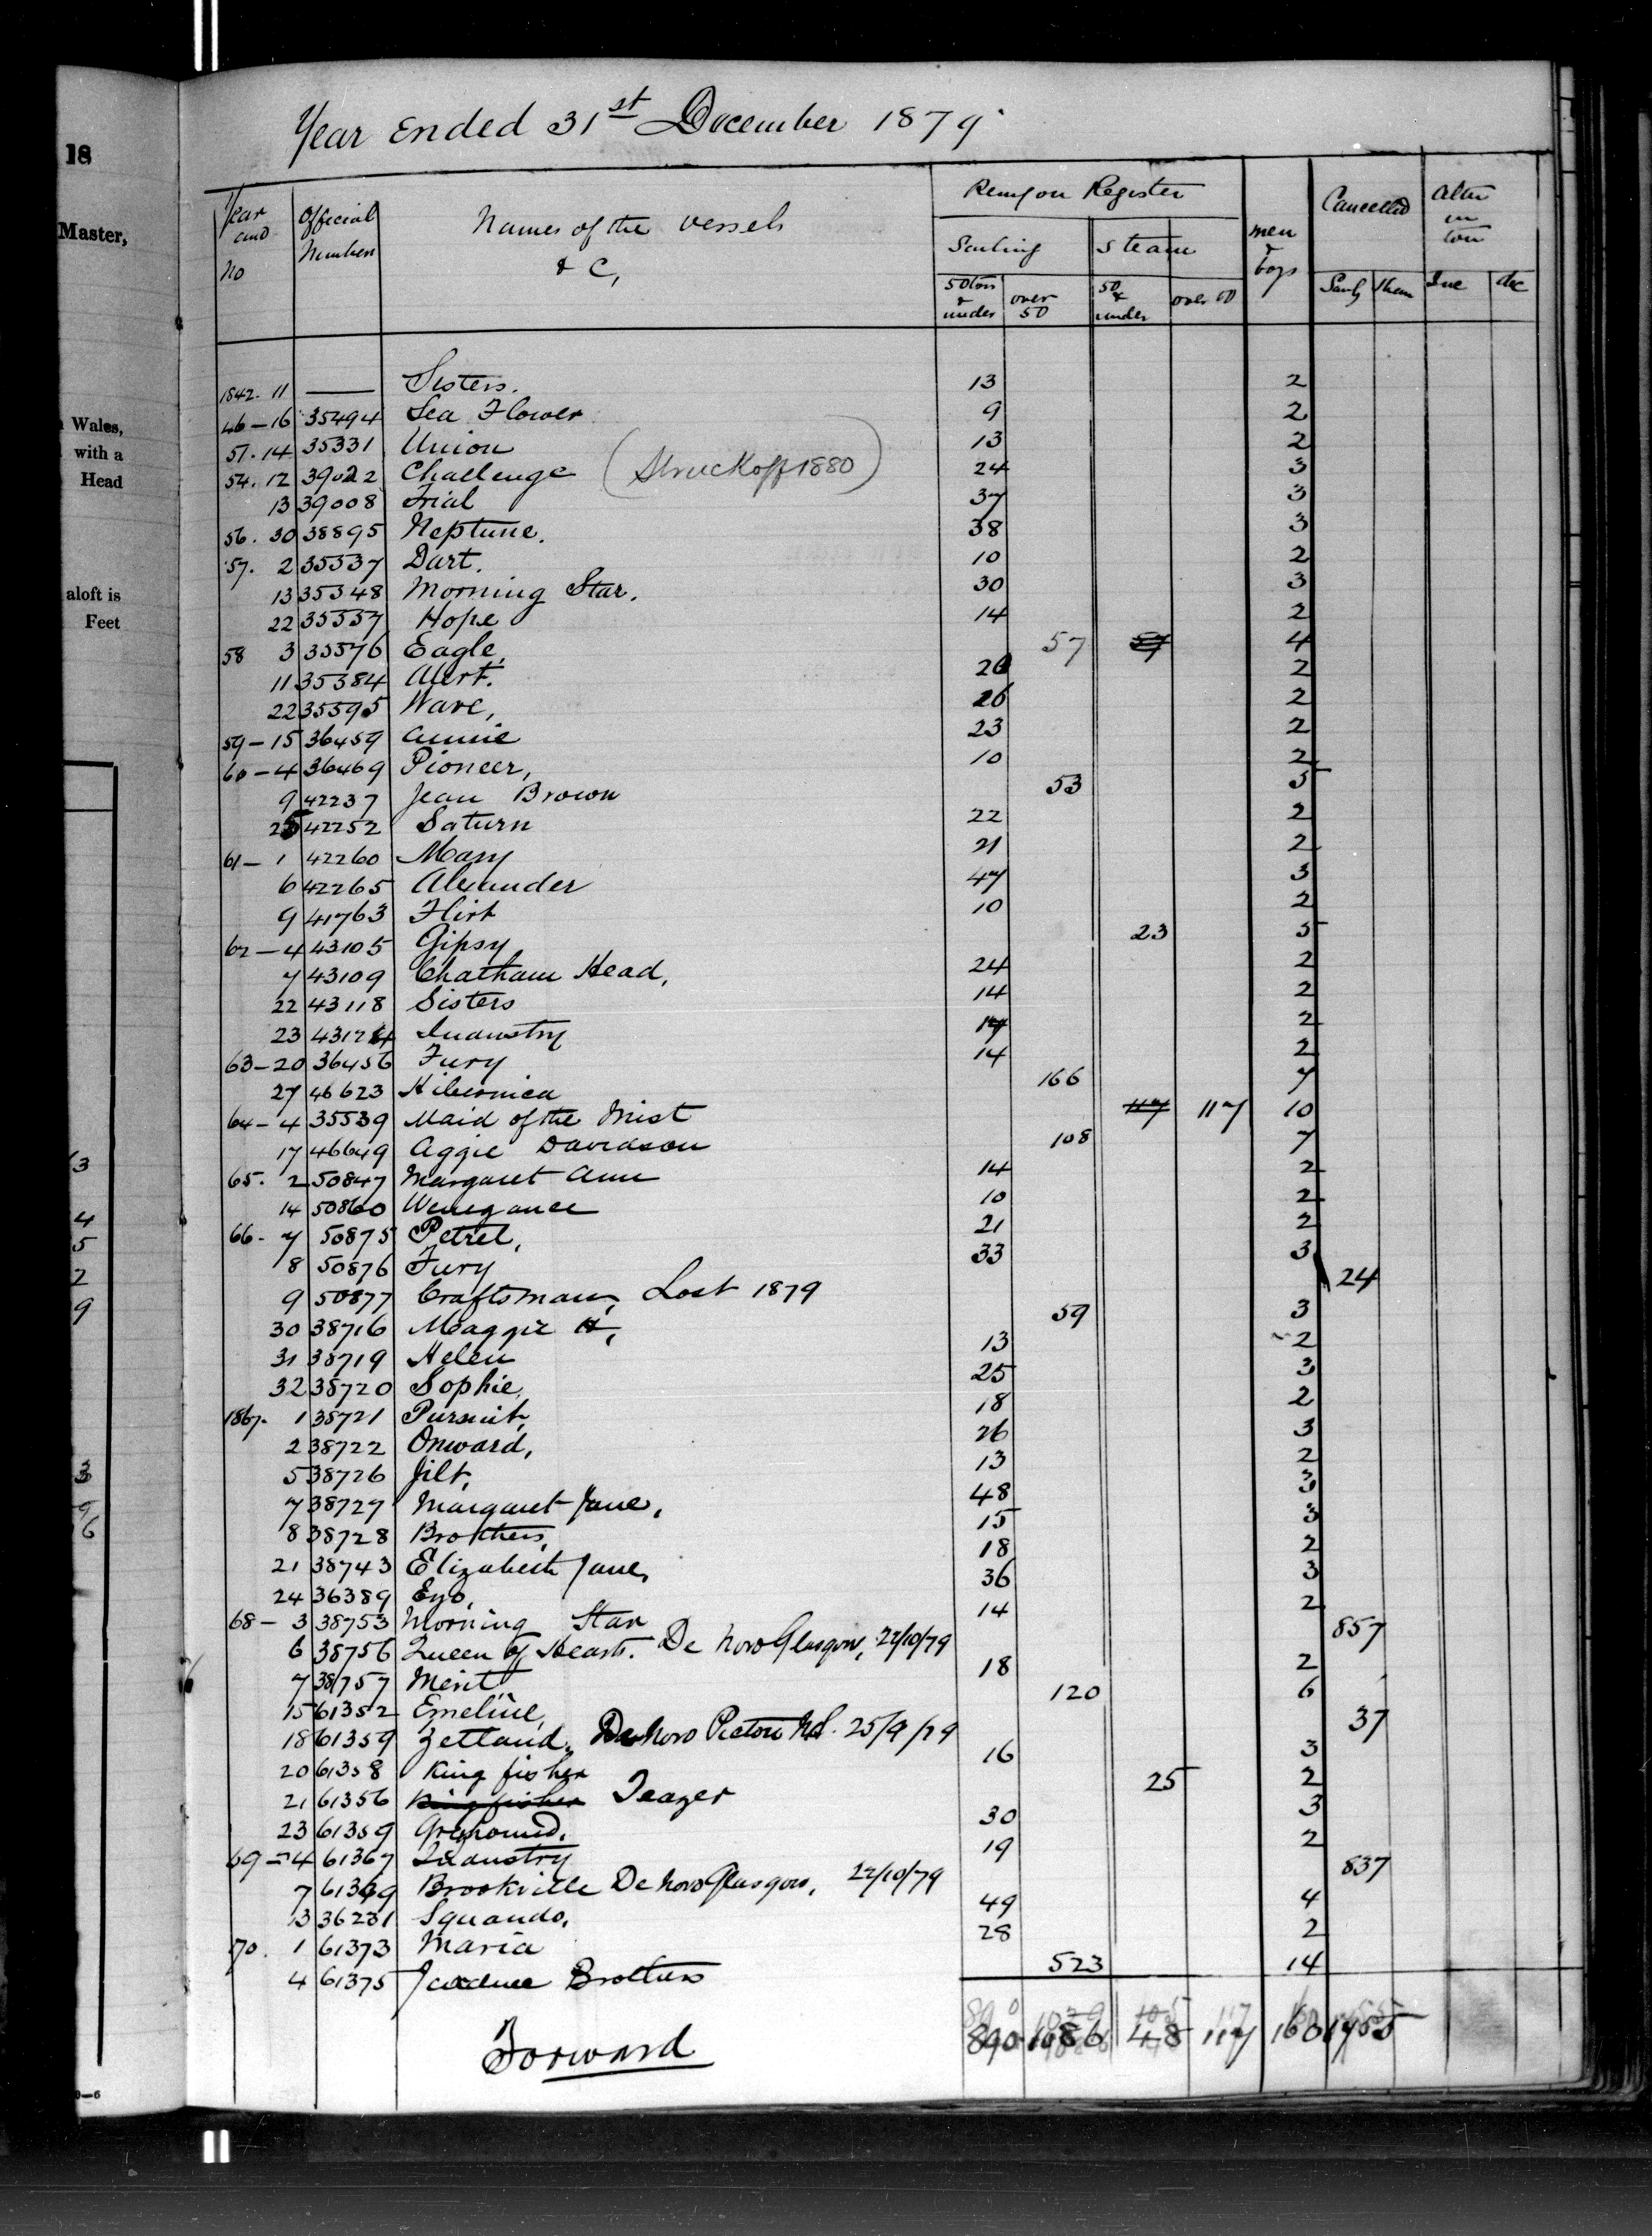 18
Master,
Wales,
with a
Head
aloft is
Feet
Year Ended 31st December 1879
Year and No
Official Numbers
Names of the vessels & C,
Remg on Register
Sailing
Steam
50 tons & under
over 50
50 & under
over 50
men & boys
Cancelled
Sailg
Steam
Alter in ton
Inc
dec
1842. 11 — Sisters. 13 2
46 – 16 35494 Sea Flower 9 2
51. 14 35331 Union 13 2
54. 12 39022 Challenge (Struck off 1880) 24 3
13 39008 Trial 37 3
56. 30 38895 Neptune. 38 3
57. 2 35337 Dart. 10 2
13 35348 Morning Star. 30 3
22 35357 Hope 14 2
58 3 35376 Eagle, 57 57 4
11 35384 Alert. 20 2
22 35395 Wave, 26 2
59 – 15 36459 Annie 23 2
60 – 4 36469 Pioneer, 10 2
9 42237 Jean Brown 53 5
25 42252 Saturn 22 2
61 – 1 42260 Mary 21 2
6 42265 Alexander 47 3
9 41763 Flirt 10 2
62 – 4 43105 Gipsy 23 5
7 43109 Chatham Head, 24 2
22 43118 Sisters 14 2
23 43124 Industry 14 2
63 – 20 36456 Fury 14 2
27 46623 Hibernica 166 7
64 – 4 35539 Maid of the Mist 117 117 10
17 46649 Aggie Davidson 108 7
65. 2 50847 Margaret Ann 14 2
14 50860 10 2
66. 7 50875 Petrel, 21 2
8 50876 Fury 33 3
9 50877 Craftsman, Lost 1879 24
30 38716 Maggie H, 59 3
31 38719 Helen 13 2
32 38720 Sophie, 25 3
1867. 1 38721 Pursuit, 18 2
2 38722 Onward, 26 3
5 38726 Jilt, 13 2
7 38727 Margaret Jane, 48 3
8 38728 Brothers, 15 3
21 38743 Elizabeth Jane, 18 2
24 36389 Eyo, 36 3
68 – 3 38753 Morning Star 14 2
6 38756 Queen of Hearts. De Novo Glasgow, 22/10/79 857
7 38757 Merit 18 2
15 61352 Emeline, 120 6
18 61359 Zetland, De Novo Pictou NS. 25/9/79 37
20 61358 King fisher 16 3
21 61356 King fisher Teazer 25 2
23 61359 Greyhound. 30 3
69 – 4 61367 Industry 19 2
7 61369 Brookville De Novo Glasgow, 22/10/79 837
13 36231 Squando, 49 4
70. 1 61373 Maria 28 2
4 61375 Jardine Brothers 523 14
Forward 890 1086 48 117 160 1755